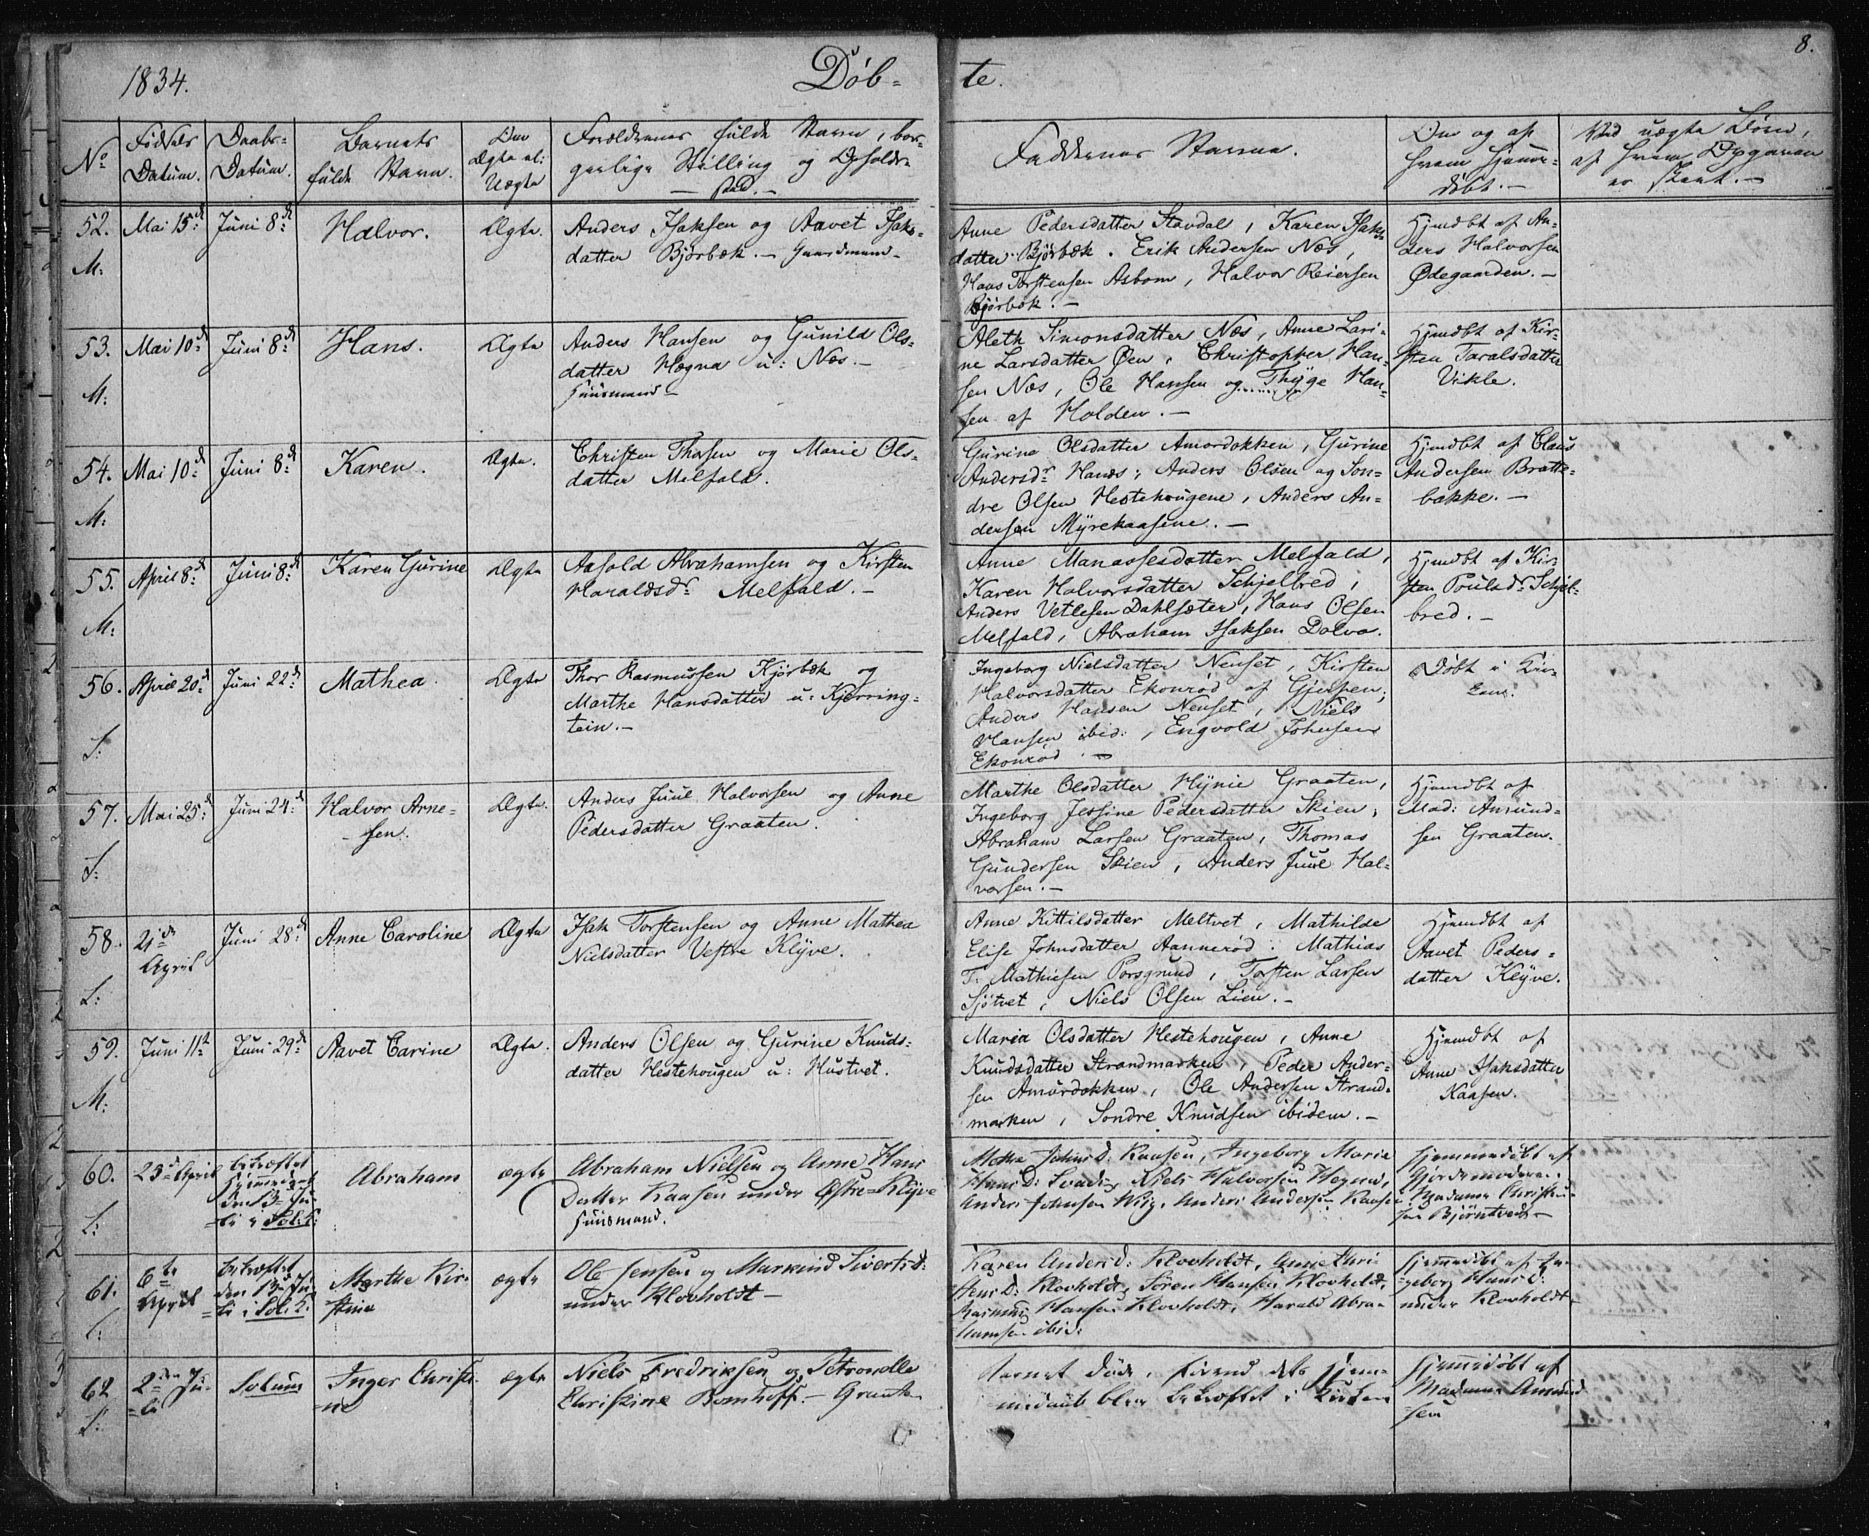 8.
1834. Døb- te.
No
Fødsels Datum.
Daabs- Datum.
Barnets fulde Navn.
Om Ægte el: Uægte
Forældrenes fulde Navn, bor-
gerlige Stilling og Opholds-
- sted. -
Faddernes Navne.
Om og af hvem hjemme- døbt. -
Ved uægte Børn,
af hvem Opgaven
er skeet. -
52. M:
Mai 15de
Juni 8de
Halvor.
Ægte.
Anders Isaksen og Aavet Isaks-
datter Bjørbæk. - Gaardmand -
Anne Pedersdatter Stavdal, Karen Isaks-
datter Bjørbæk. Erik Andersen Næs,
Hans Torstensen Asbom, Halvor Reiersen
Bjørbæk. -
Hjmdbt af An-
ders Halvorsen
Ødegaarden. -
53. M:
Mai 10de
Juni 8de
Hans.
Ægte
Anders Hansen og Gunild Ols-
datter Hægna u: Næs. -
Huusmand -
Aleth Simonsdatter Næs, Anne Lari-
ne Larsdatter Øen, Christopher Han-
sen Næs, Ole Hansen og Thyge Han-
sen af Holden. -
Hjmdbt af Kir-
sten Taralsdatter
Vikle.
54. M:
Mai 10de
Juni 8de
Karen.
Ægte.
Christen Thorsen og Marie Ols-
datter Melfald.
Gurine Olsdatter Amordokken, Gurine
Andersdr Hanæs; Anders Olsen og Son-
dre Olsen Hestehougene, Anders An-
dersen Myrekaasene. -
Hjmdbt af Claus
Andersen Bratte-
bakke. -
55. M:
April 8de
Juni 8de
Karen Gurine
Ægte
Aasold Abrahamsen og Kirsten
Haraldsdr Melfald. -
Anne Manassesdatter Melfald,
Karen Halvorsdatter Schjelbred,
Anders Vetlesen Dahlsæter, Hans Olsen
Melfald, Abraham Isaksen Dolva.
Hjmdbt af Kir-
sten Poulsdr Schjel-
bred. -
56. S:
April 20de
Juni 22de
Mathea.
Ægte
Thor Rasmussen Kjørbæk og
Marthe Hansdatter u: Kjerring-
tein. -
Ingeborg Nielsdatter Nenset, Kirsten
Halvorsdatter Ekonrød af Gjerpen;
Anders Hansen Nenset, Niels
Hansen ibid:, Engvold Johnsen
Ekonrød. -
Døbt i Kir-
ken.
57. S:
Mai 25de
Juni 24de
Halvor Arne-
sen.
Ægte.
Anders Juul Halvorsen og Anne
Pedersdatter Graaten.
Marthe Olsdatter Hynie Graaten,
Ingeborg Jessine Pedersdatter Skien;
Abraham Larsen Graaten, Thomas
Gundersen Skien, Anders Juul Hal-
vorsen. -
Hjemdbt af
Mad: Amund-
sen Graaten.
58. S:
21de
April
Juni 28de
Anne Caroline
Ægte
Isak Torstensen og Anne Mathea
Nielsdatter Vestre Klyve.
Anne Kittilsdatter Meltvet, Mathilde
Elise Johnsdatter Aannerød: Mathias
T: Mathiesen Porsgrund, Torsten Larsen
Sjøtvet, Niels Olsen Lien. -
Hjemdbt af
Aavet Peders-
datter Klyve.
59. M:
Juni 11te
Juni 29de
Aavet Carine
Ægte.
Anders Olsen og Gurine Knuds-
datter Hestehougen u: Hustvet.
Maria Olsdatter Hestehougen, Anne
Knudsdatter Strandmarken, Peder Ander-
sen Amordokken, Ole Andersen Strand-
marken, Sondre Knudsen ibidem. -
Hjemdbt af
Anne Isaksdatter
Kaasen.
60. S:
25de April
bekræftet
Juli i Sol: K:
Abraham
ægte
Abraham Nielsen og Anne Hans
Datter Kaasen under Østre Klyve
Huusmand.
Kaasen, Ingeborg Maria
Hans D: Niels Halvorsen Hægna,
Anders Johnsen Anders Andersen Kaasen
hjemmedøbt af
Gjordemoderen
Madame Christen-
sen Bjørntvedt -
61. S:
6te
April
bekræftet
Juli i Sol: K:
Marthe Kir-
stine
ægte
Ole Jensen og Sivertsd:
under Klovholdt -
Karen Anders D: Klovholdt, Anne Chri-
stens D: Klovholdt, Søren Hansen Klovholdt,
Rasmus Hansen Klovholdt, Harald Abra-
hamsen ibid:
hjemmdøbt af In-
geborg Hans D:
under Klovholdt -
62 S:
2den Ju-
li
Solum
Inger Christi-
ne
ægte
Niels Fredriksen og Petronelle
Christine Bomhoff - Graaten
Barnet døde, førend dets hjem-
medaab blev bekræftet i Kirken
hjemmdøbt af
Madame Amund-
sen